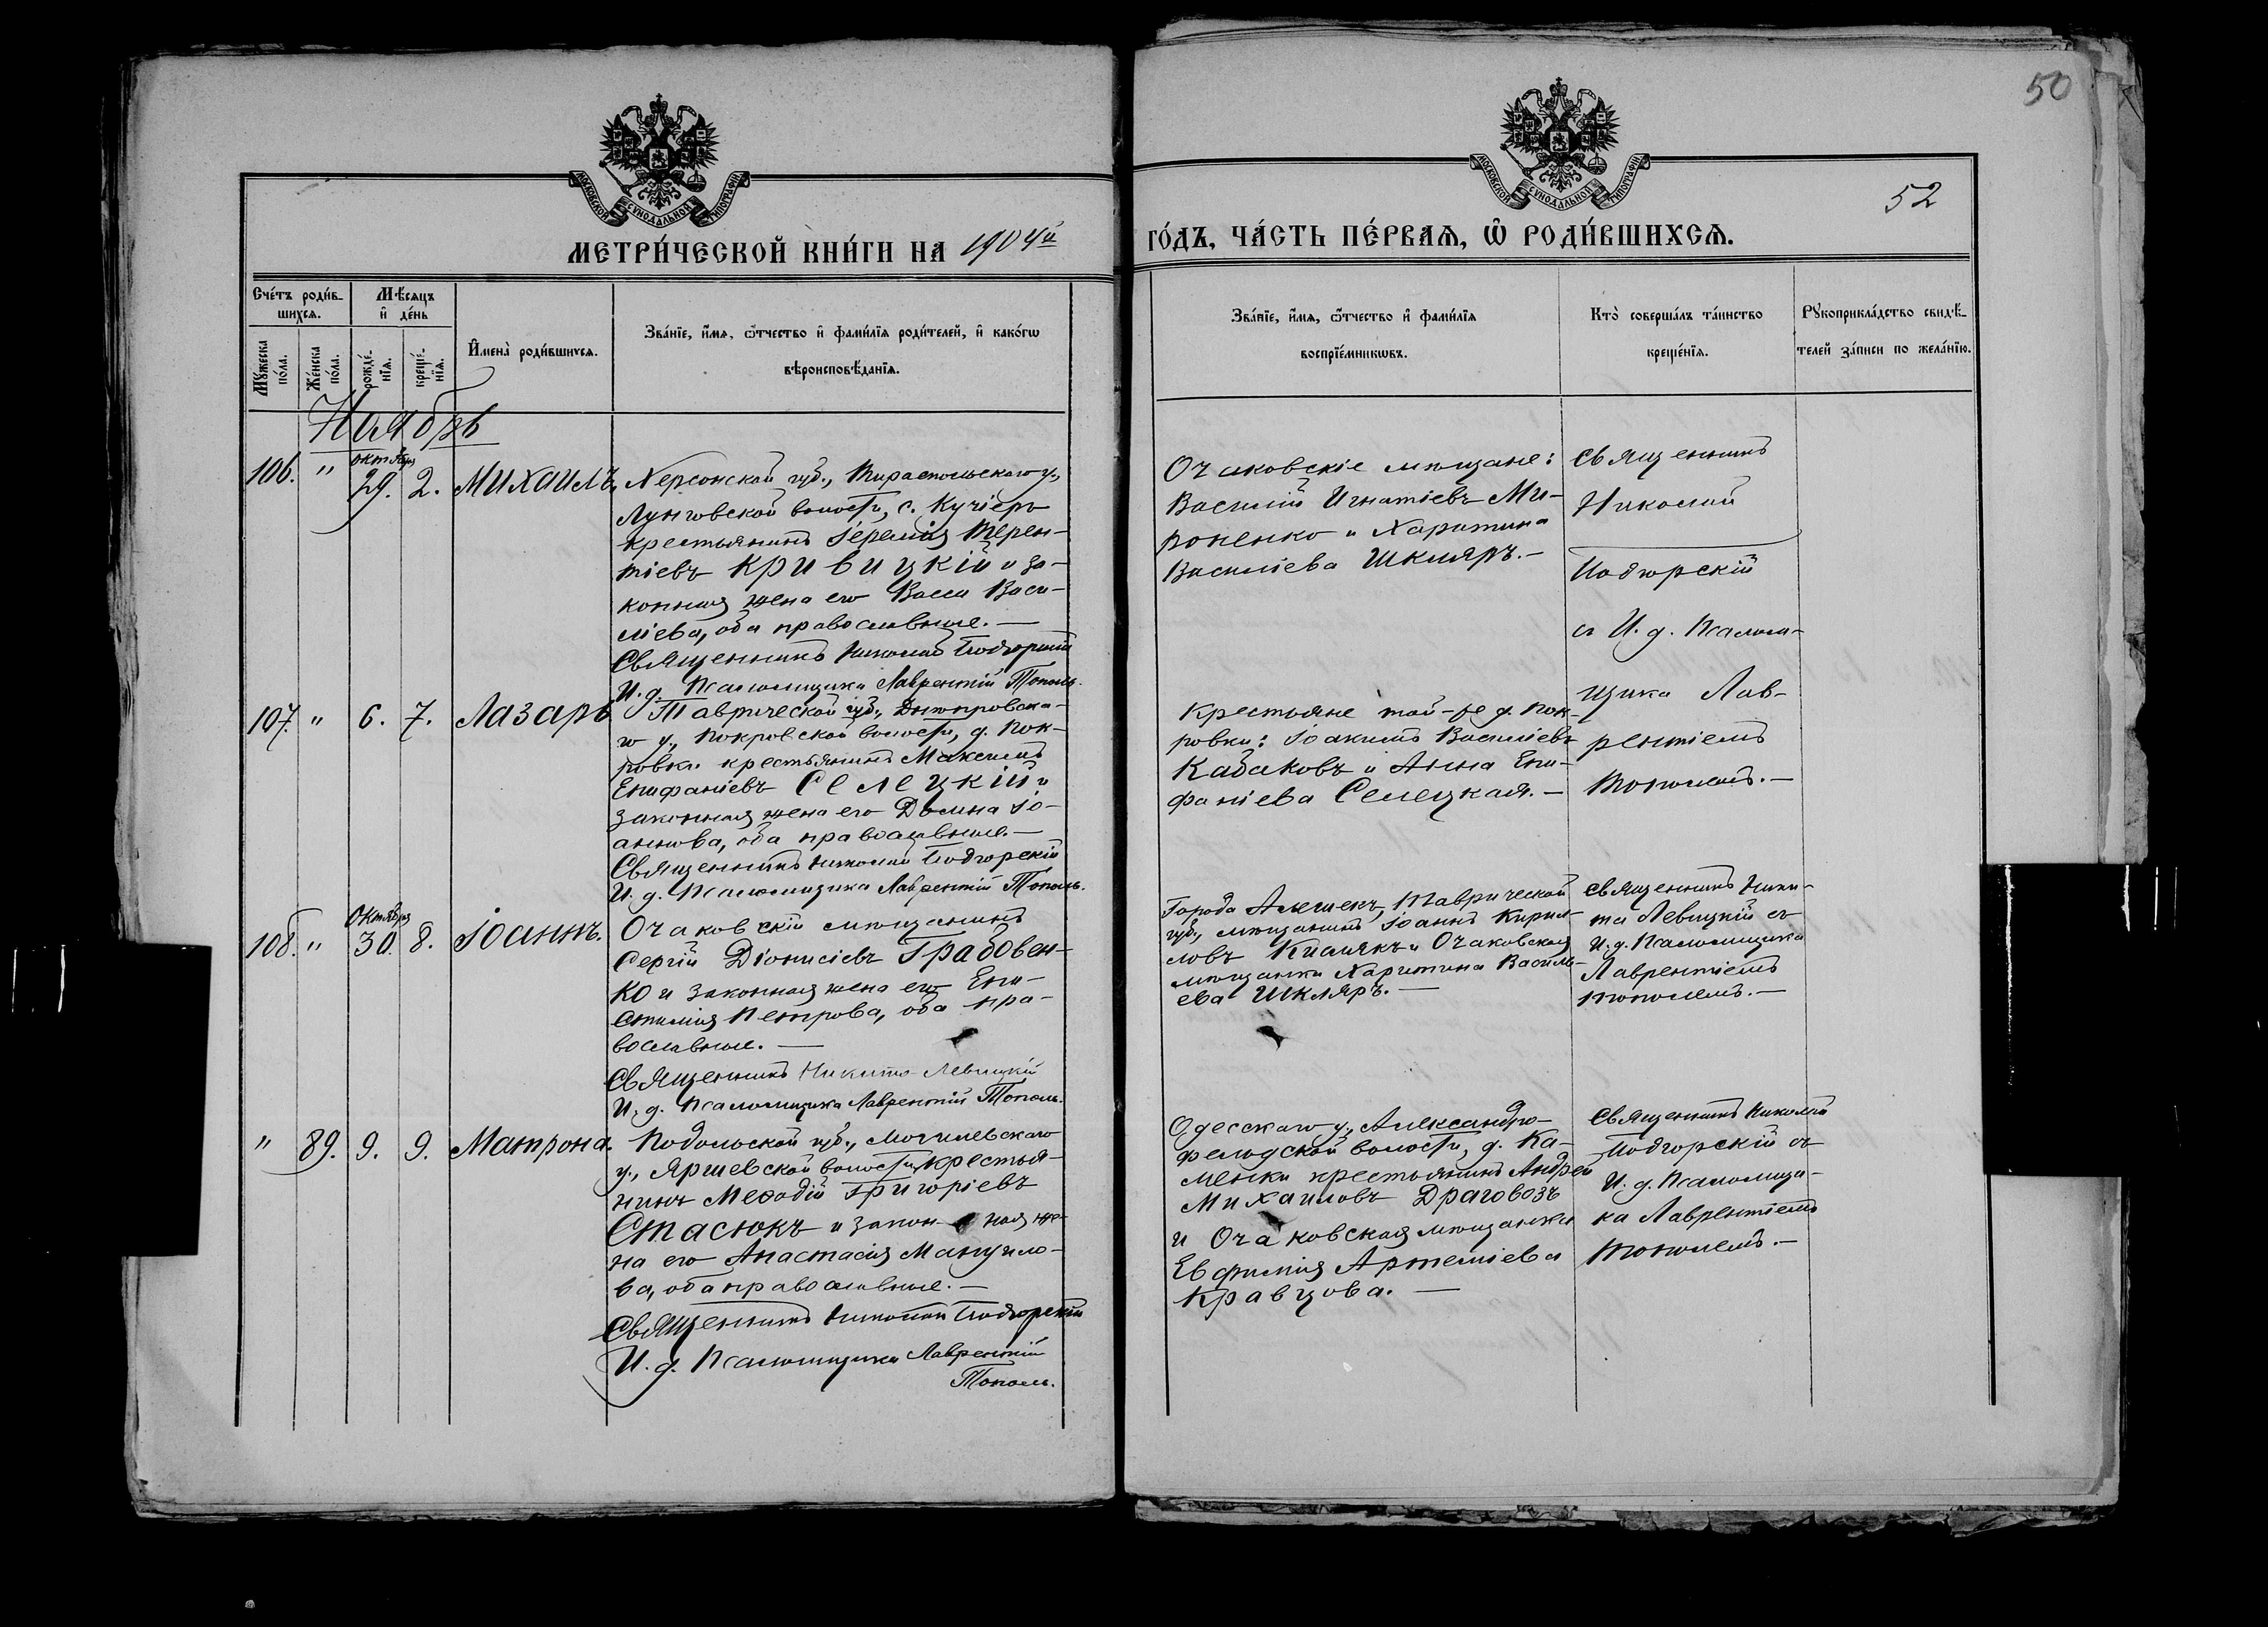 50
МОСКОВСКОЙ СѴНОДАЛЬНОЙ ТИПОГРАФІИ
МОСКОВСКОЙ СѴНОДАЛЬНОЙ ТИПОГРАФІИ
52
МЕТРИ́ЧЕСКОЙ КНИ́ГИ НА 1904й
ГО́ДЪ, ЧА́СТЬ ПЕ́РВАѦ, Ѡ҆ РОДИ́ВШИХСѦ.
Сче́тъ роди́в-
шихсѧ.
Мꙋ́жеска
по́ла.
Же́нска
по́ла.
Мѣ́сѧцъ
и҆ де́нь
рожде́-
нїѧ.
креще́-
нїѧ.
И҆мена̀ роди́вшихсѧ.
Зва́нїе, и҆́мѧ, ѻ҆́тчество и҆ фами́лїѧ роди́телей, и҆ како́гѡ
вѣроисповѣ́данїѧ.
Зва́нїе, и҆́мѧ, ѻ҆́тчество и҆ фами́лїѧ
воспрїе́мникѡвъ.
Кто̀ соверша́лъ та́инство
креще́нїѧ.
Рꙋкоприкла́дство свидѣ́-
телей за́писи по жела́нїю.
Ноябрь
106. " октября 29. 2. Михаилъ.
Херсонской губ., Тираспольскаго у.,
Лунговской волости, с. Кучіеръ
крестьянинъ Іеремія Терен-
тіевъ Кривицкій и за-
конная жена его Васса Васи-
ліева, оба православные.—
Священникъ Николай Подгорскій
И. д. Псаломщика Лаврентій Тополь.
Очаковскіе мѣщане:
Василій Игнатіевъ Ми-
роненко и Харитина
Василіева Шкляръ.—
Священникъ
Николай
Подгорскій
съ И. д. Псалом-
щика Лав-
рентіемъ
Тополемъ.—
107. " 6. 7. Лазарь
Таврической губ., Днѣпровска-
го у., Покровской волости, д. Пок-
ровки крестьянинъ Максимъ
Епифаніевъ Селецкій и
законная жена его Домна Іо-
аннова, оба православные.—
Священникъ Николай Подгорскій
И. д. Псаломщика Лаврентій Тополь.
Крестьяне той-же д. Пок-
ровки: Іоакимъ Василіевъ
Кабаковъ и Анна Епи-
фаніева Селецкая.—
108. " Октября 30. 8. Іоаннъ.
Очаковскій мѣщанинъ
Сергій Діонисіевъ Грабовен-
ко и законная жена его Епи-
стимія Петрова, оба пра-
вославные.—
Священникъ Никита Левицкій
И. д. Псаломщика Лаврентій Тополь.
Города Алешекъ, Таврической
губ., мѣщанинъ Іоаннъ Кирил-
ловъ и Очаковская
мѣщанка Харитина Василь-
ева Шкляръ.—
Священникъ Ники-
та Левицкій съ
И. д. Псаломщика
Лаврентіемъ
Тополемъ.—
" 89. 9. 9. Матрона.
Подольской губ., Могилевскаго
у., Яришевской волости, крестья-
нинъ Меѳодій Григоріевъ
Стасюкъ и закон-ная же-
на его Анастасія Мануило-
ва, оба православные.—
Священникъ Николай Подгорскій
И. д. Псаломщика Лаврентій
Тополь.
Одесскаго у., Александро-
фельдской волости, д. Ка-
менки крестьянинъ Андрей
Михаиловъ Драговозъ
и Очаковская мѣщанка
Евфимія Артеміева
Кравцова.—
Священникъ Николай
Подгорскій съ
И. д. Псаломщи-
ка Лаврентіемъ
Тополемъ.—